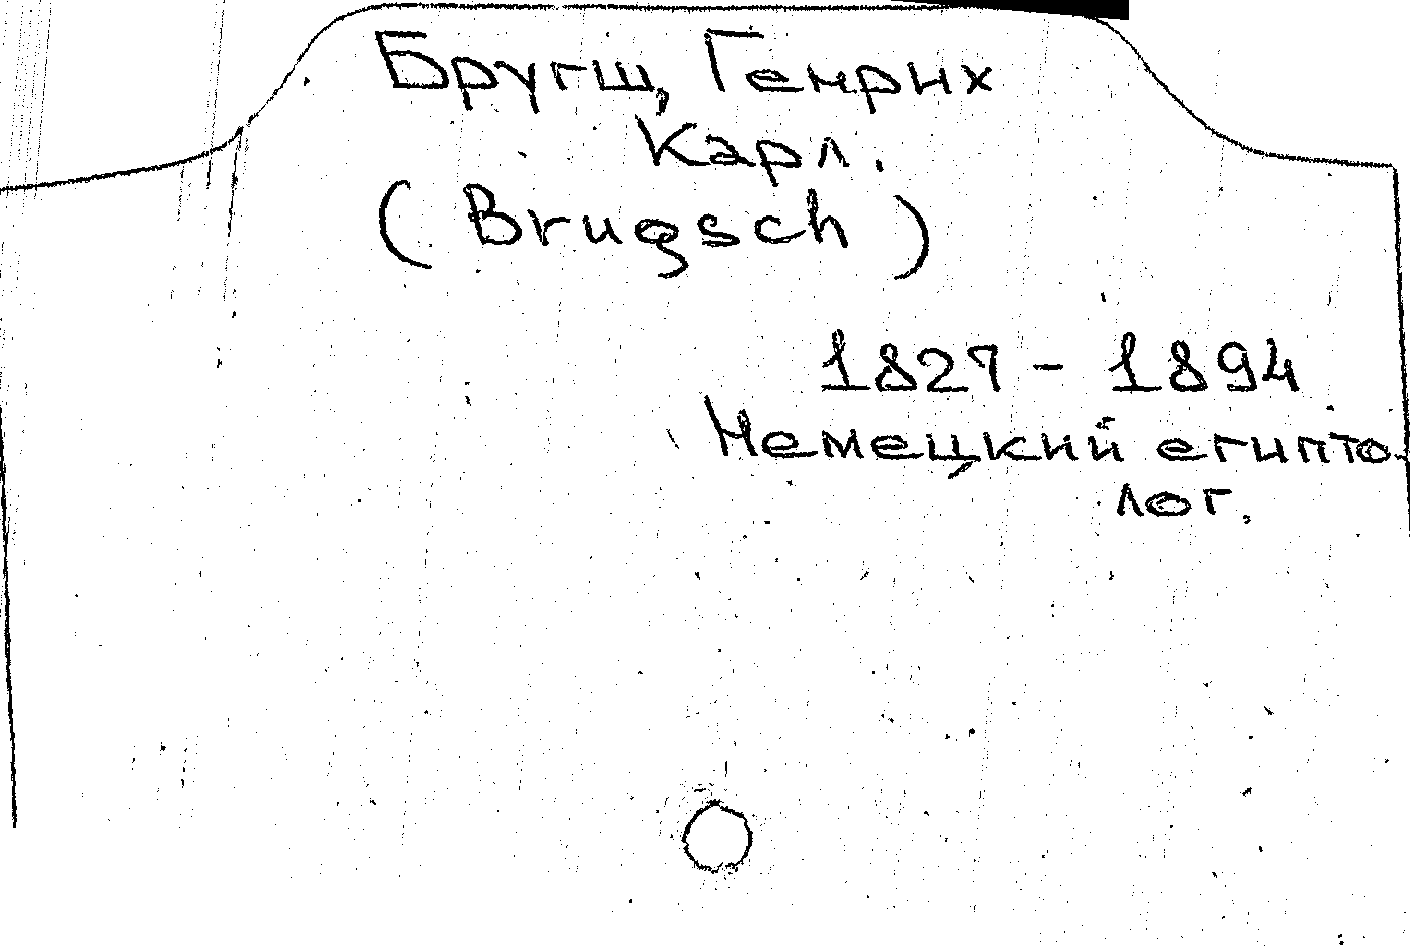 Бругш, Генрих
Карл.
(Brugsch)
1827 - 1894
Немецкий египто-
лог.